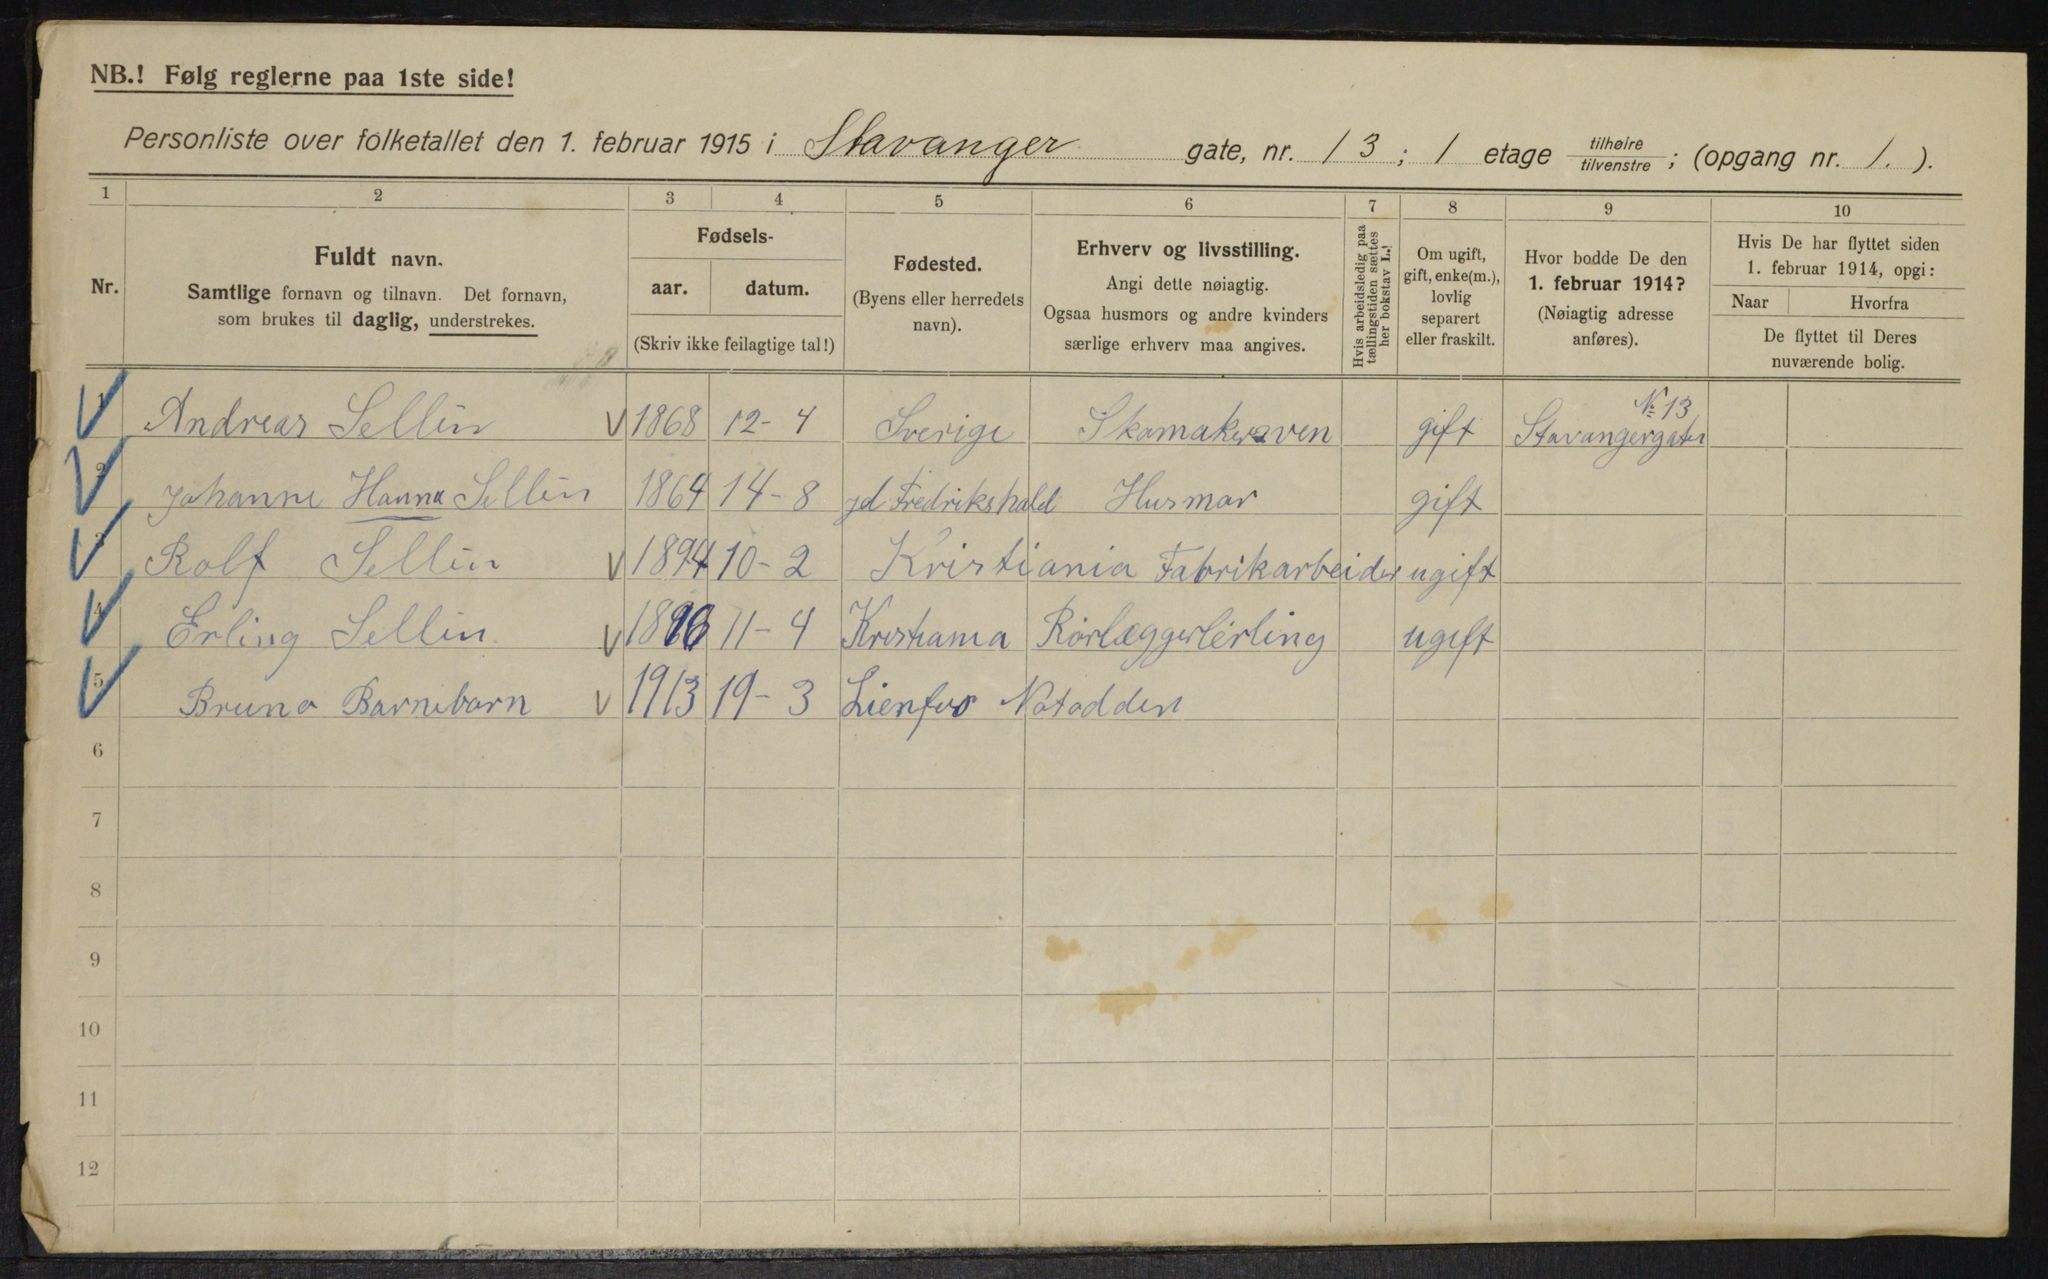 NB.! Følg reglerne paa 1ste side!
Personliste over folketallet den 1. februar 1915 i Stavanger gate, nr. 13; 1 etage tilhøire tilvenstre; (opgang nr. 1.).
1 2 3 4 5 6 7 8 9 10
Nr.
Fuldt navn.
Samtlige fornavn og tilnavn. Det fornavn,
som brukes til daglig, understrekes.
Fødsels-
aar. datum.
(Skriv ikke feilagtige tal!)
Fødested.
(Byens eller herredets
navn).
Erhverv og livsstilling.
Angi dette nøiagtig.
Ogsaa husmors og andre kvinders
særlige erhverv maa angives.
Hvis arbeidsledig paa
tællingstiden sættes
her bokstav L.!
Om ugift,
gift, enke(m.),
lovlig
separert
eller fraskilt.
Hvor bodde De den
1. februar 1914?
(Nøiagtig adresse
anføres).
Hvis De har flyttet siden
1. februar 1914, opgi:
Naar Hvorfra
De flyttet til Deres
nuværende bolig.
1 Andreas Sellin 1868 12-4 Sverige Skomakersven gift Stavangergaten No 13
2 Johanne Hanna Sellin 1864 14-8 Fredrikshald Husmor gift
3 Rolf Sellin 1894 10-2 Kristiania Fabrikarbeider ugift
4 Erling Sellin 1896 11-4 Kristiania Rörlæggerlérling ugift
5 Bruno Barnebarn 1913 19-3 Lienfos Notodden
6
7
8
9
10
11
12